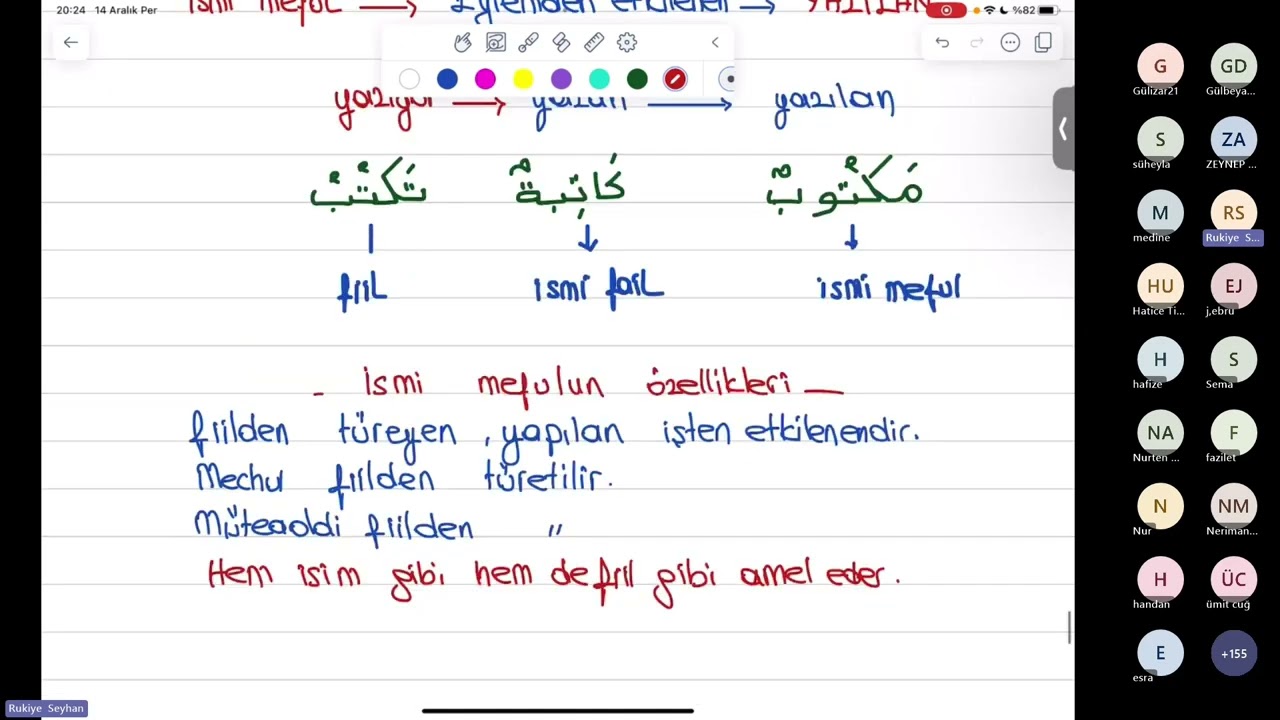 20:24 14 Aralık Per
%82
ismi meful → → YAZILAN
yazıyor → yazan → yazılan
تَكْتُبُ كَاتِبَةٌ مَكْتُوبٌ
fiil ismi fail ismi meful
- İsmi mefulun özellikleri -
fiilden türeyen, yapılan işten etkilenendir.
Mechul fiilden türetilir.
Müteaddi fiilden "
Hem isim gibi hem de fiil gibi amel eder.
G GD
Gülizar21 Gülbeya...
S ZA
süheyla ZEYNEP ...
M RS
medine Rukiye S...
HU EJ
Hatice Ti... j,ebru
H S
hafize Sema
NA F
Nurten ... fazilet
N NM
Nur Neriman...
H ÜC
handan ümit cuğ
E +155
esra
Rukiye Seyhan